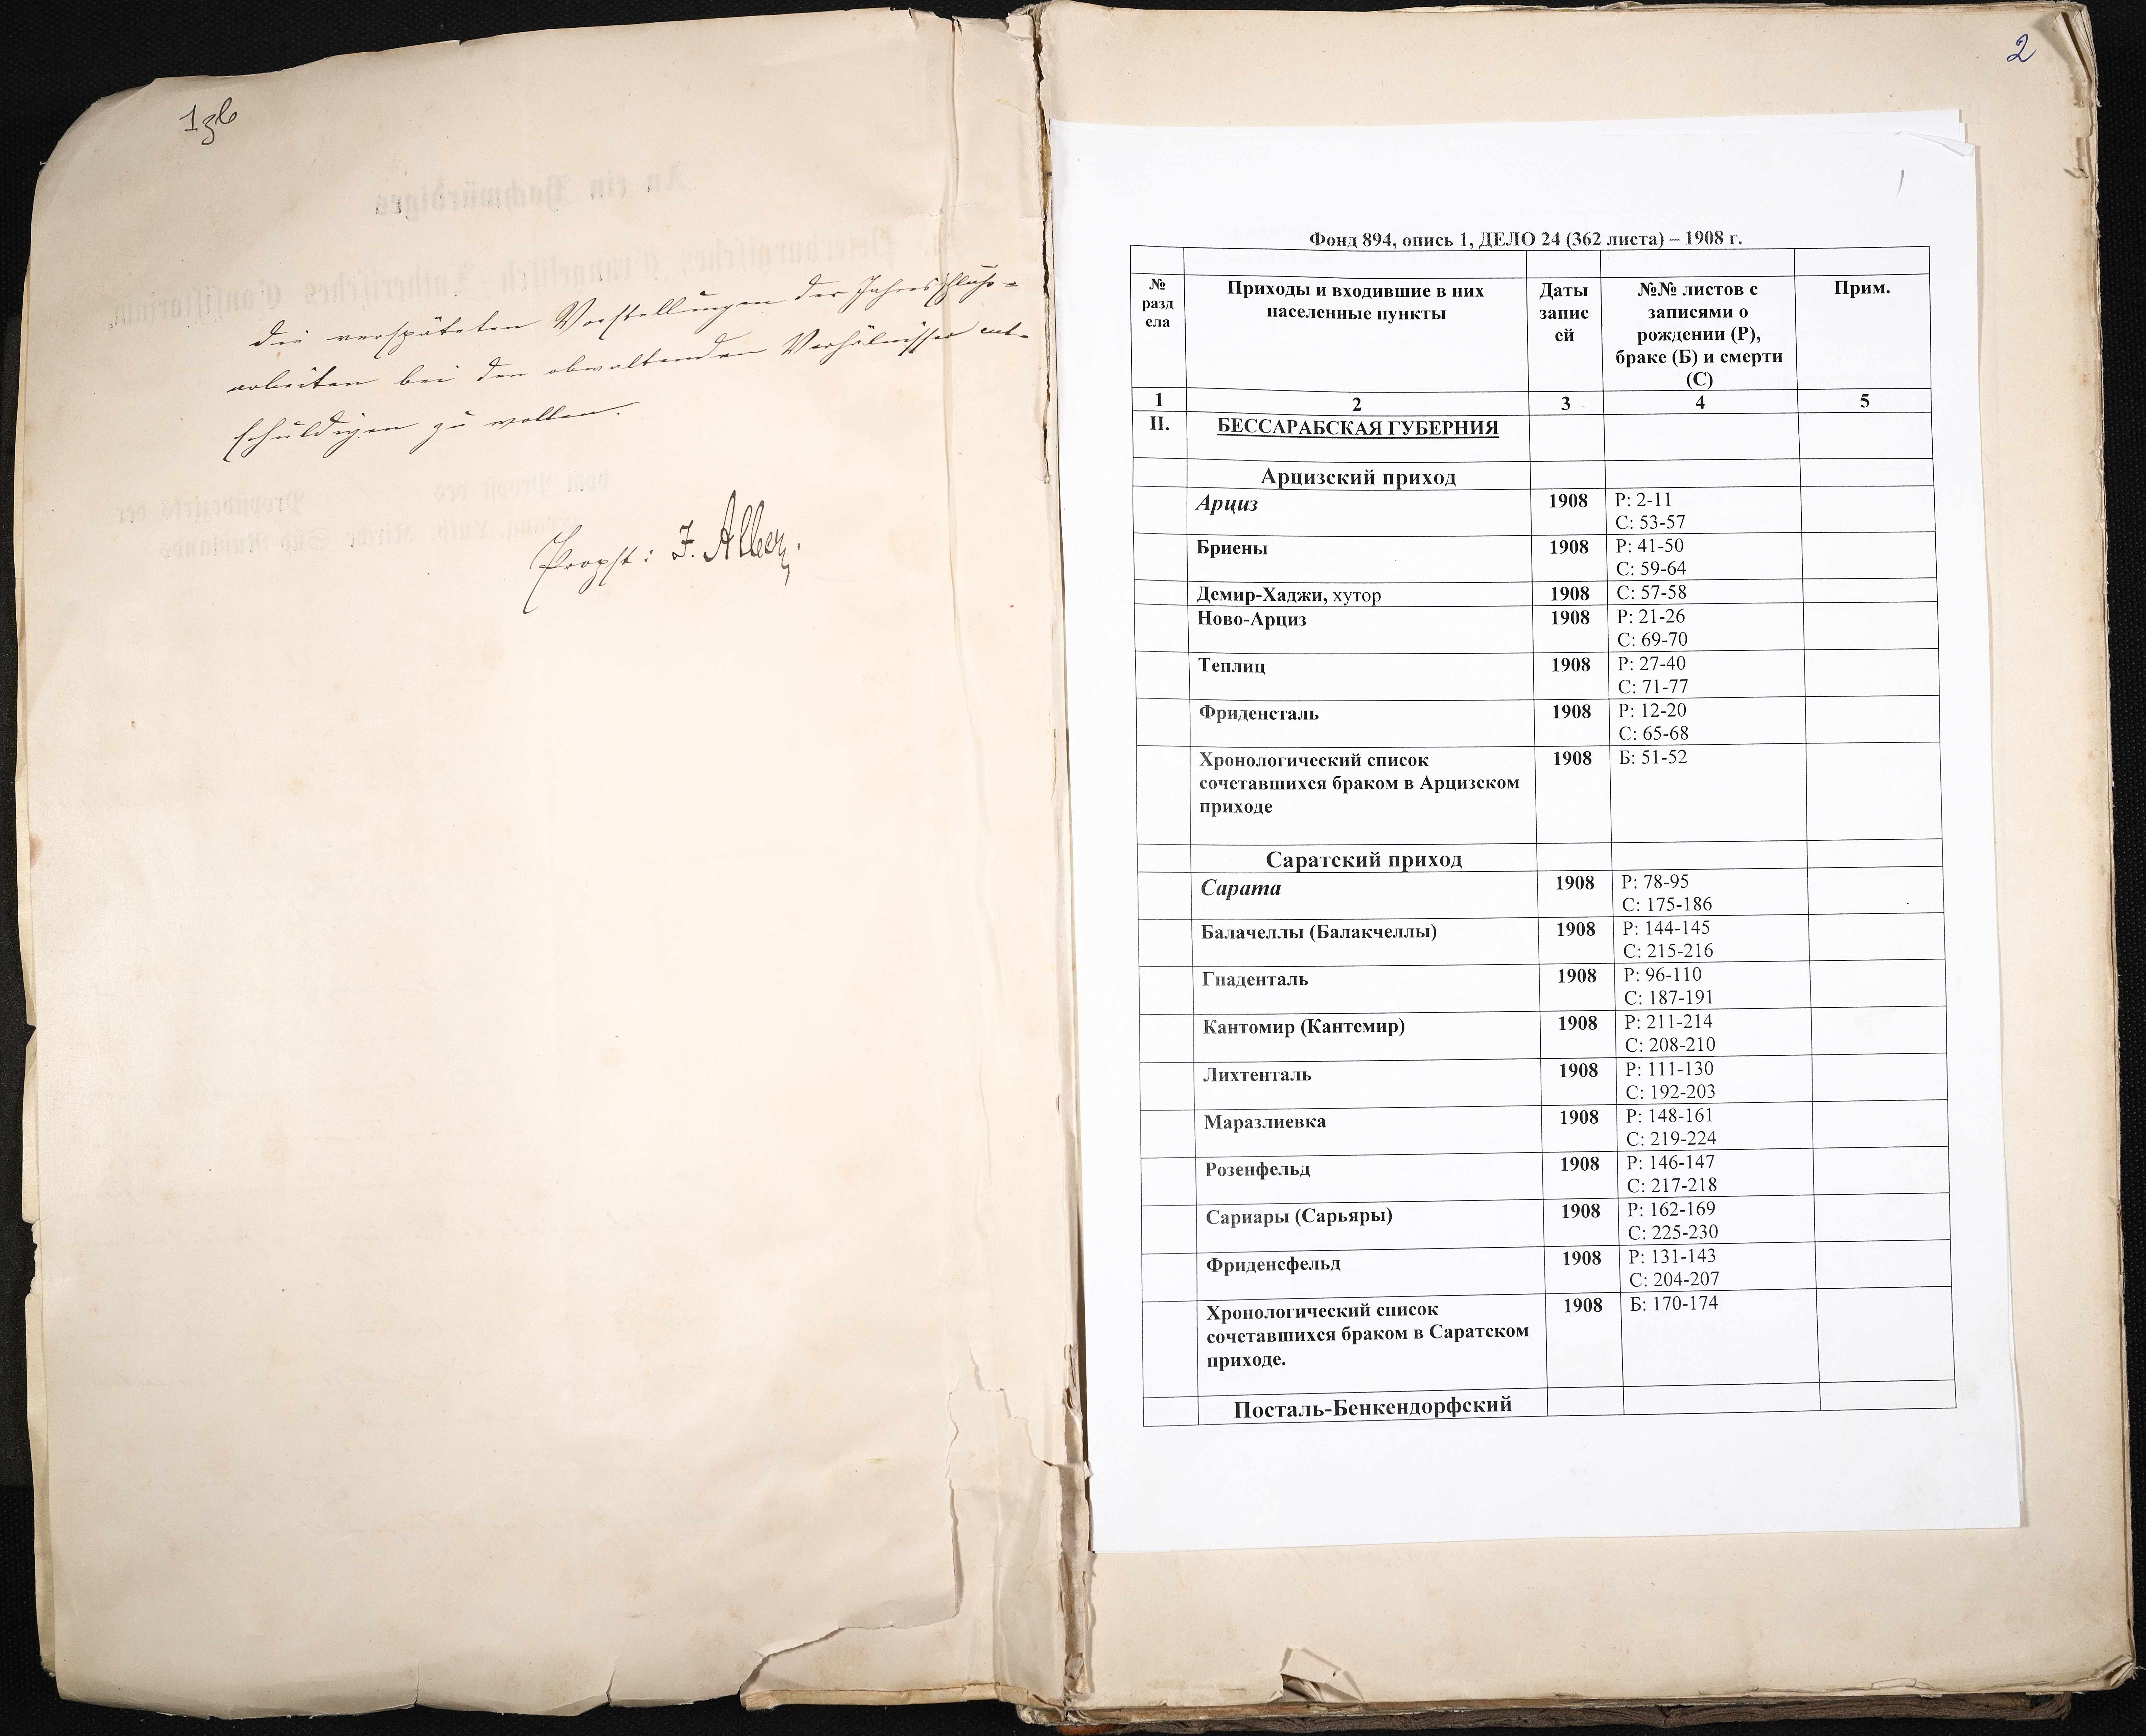 1зв
die verspäteten Vorstellungen der Jahresschluß-
arbeiten bei den obwaltenden Verhältnissen ent-
schuldigen zu wollen.
Propst: J. Alber,
2
Фонд 894, опись 1, ДЕЛО 24 (362 листа) – 1908 г.
№ Приходы и входившие в них Даты №№ листов с Прим.
разд населенные пункты запис записями о
ела ей рождении (Р),
браке (Б) и смерти
(С)
1 2 3 4 5
II. БЕССАРАБСКАЯ ГУБЕРНИЯ
Арцизский приход
Арциз 1908 Р: 2-11
С: 53-57
Бриены 1908 Р: 41-50
С: 59-64
Демир-Хаджи, хутор 1908 С: 57-58
Ново-Арциз 1908 Р: 21-26
С: 69-70
Теплиц 1908 Р: 27-40
С: 71-77
Фриденсталь 1908 Р: 12-20
С: 65-68
Хронологический список 1908 Б: 51-52
сочетавшихся браком в Арцизском
приходе
Саратский приход
Сарата 1908 Р: 78-95
С: 175-186
Балачеллы (Балакчеллы) 1908 Р: 144-145
С: 215-216
Гнаденталь 1908 Р: 96-110
С: 187-191
Кантомир (Кантемир) 1908 Р: 211-214
С: 208-210
Лихтенталь 1908 Р: 111-130
С: 192-203
Маразлиевка 1908 Р: 148-161
С: 219-224
Розенфельд 1908 Р: 146-147
С: 217-218
Сариары (Сарьяры) 1908 Р: 162-169
С: 225-230
Фриденсфельд 1908 Р: 131-143
С: 204-207
Хронологический список 1908 Б: 170-174
сочетавшихся браком в Саратском
приходе.
Посталь-Бенкендорфский